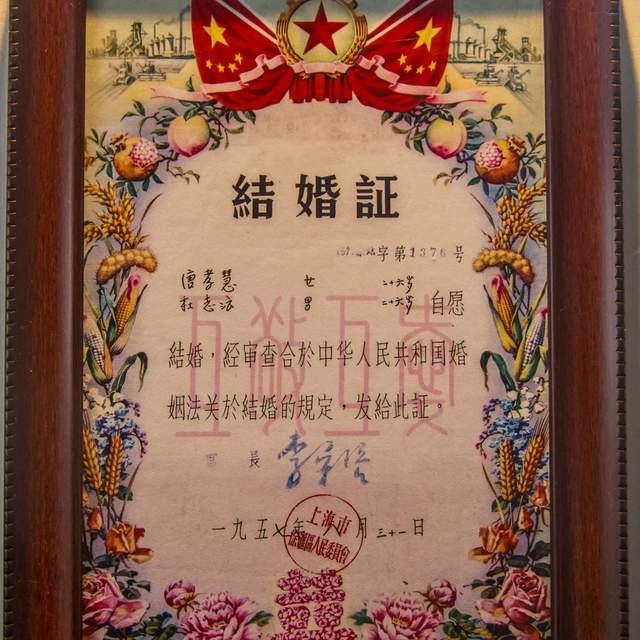 結婚証
字第1376号
唐孝慧 女 二十六岁
杜志 男 二十六岁 自愿
互敬互愛
結婚，經审查合於中华人民共和国婚
姻法关於結婚的規定，发給此証。
區長
一九五七年 月三十一日
上海市
區人民委員會
囍